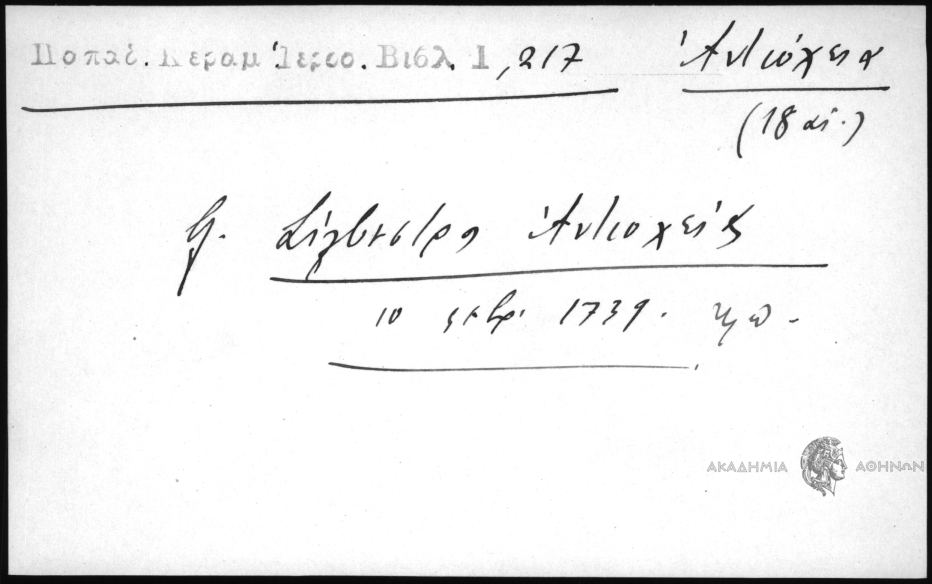 Παπαδ. Κεραμ Ἱερσο. Βιβλ. 1, 217 Ἀντιόχεια
(18 αἰ.)
Σιλβέστρου Ἀντιοχείας
10 1739.
ΑΚΑΔΗΜΙΑ ΑΘΗΝΩΝ